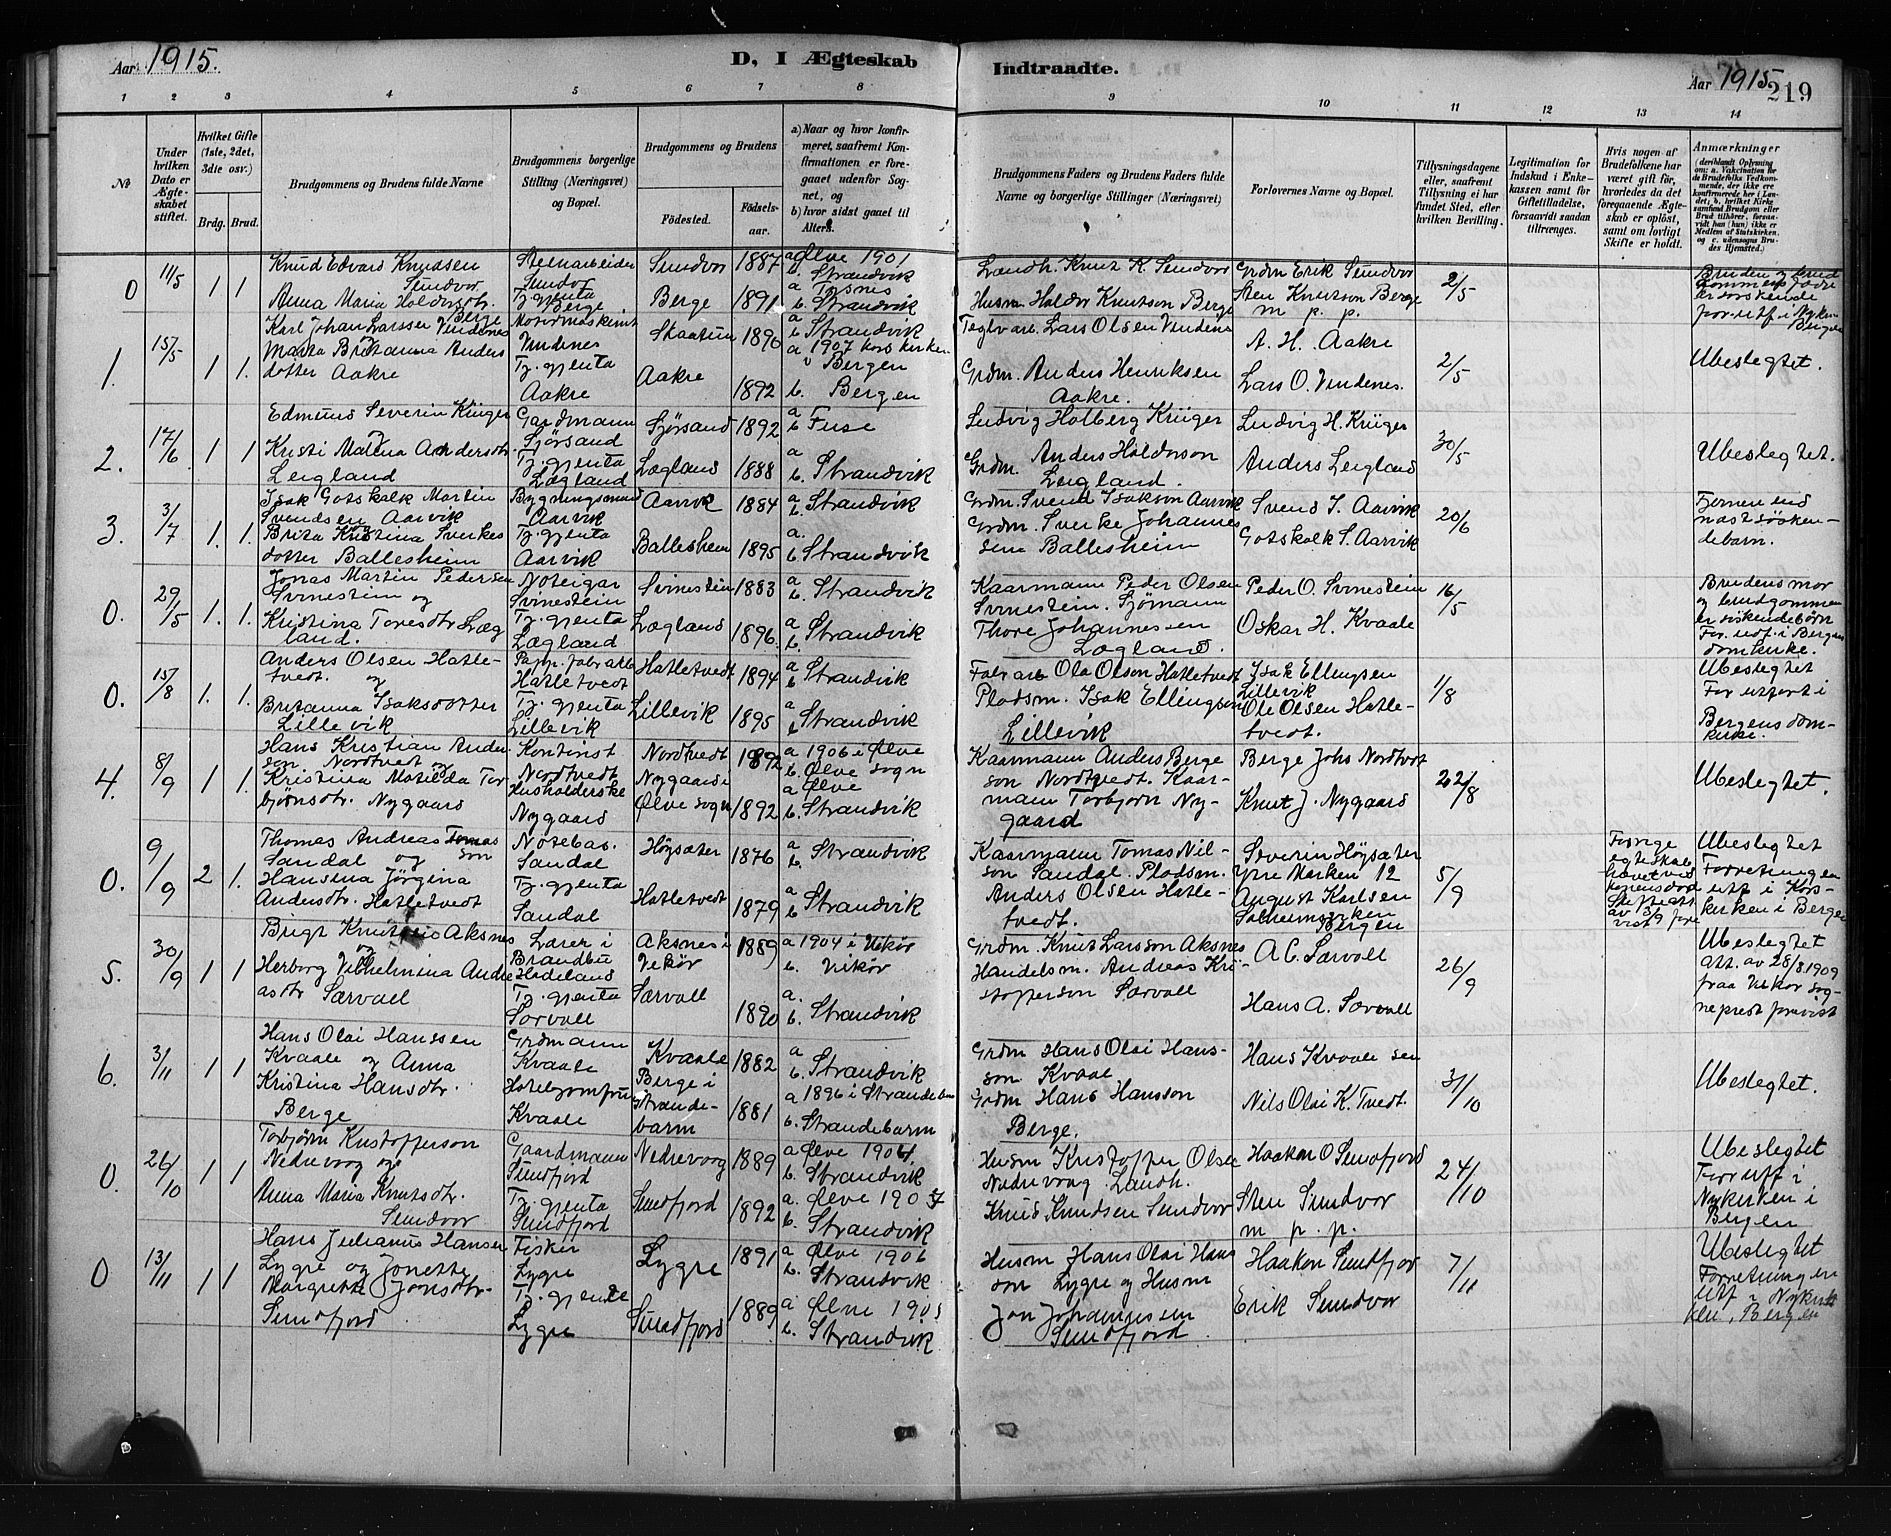 Aar 1915.
D, I Ægteskab
Indtraadte.
Aar 1915
219
1 2 3 4 5 6 7 8 9 10 11 12 13 14
No
Under hvilken Dato er Ægteskabet stiftet.
Hvilket Gifte (1ste, 2det, 3die osv.)
Brdg. Brud.
Brudgommens og Brudens fulde Navne
Brudgommens borgerlige Stilling (Næringsvei) og Bopæl.
Brudgommens og Brudens
Fødested.
Fødselsaar.
a) Naar og hvor konfirmeret, saafremt Konfirmationen er foregaaet udenfor Sognet, og
b) hvor sidst gaaet til Alters.
Brudgommens Faders og Brudens Faders fulde Navne og borgerlige Stillinger (Næringsvei)
Forlovernes Navne og Bopæl.
Tillysningsdagene eller, saafremt Tillysning ei har fundet Sted, efter hvilken Bevilling.
Legitimation for Indskud i Enkekassen samt for Giftetilladelse, forsaavidt saadan tiltrænges.
Hvis nogen af Brudefolkene har været gift før, hvorledes da det foregaaende Ægteskab er opløst, samt om lovligt Skifte er holdt.
Anmærkninger
0 11/5 1 1
Knud Edvard Knudsen Sundvor
Anna Maria Haldorsdtr. Berge
Sundvor
Tj. gjenta Berge
Sundvor 1887
Berge 1891
a Ølve 1901
b. Strandvik
a Tysnes
b. Strandvik
Landh. Knut K. Sundvor
Husm Haldor Knutson Berge
Grdm Erik Sundvor
Sten Knutson Berge
m. p. p.
2/5
1. 15/5 1 1.
Karl Johan Larssen Vindenes
Marta Britanna Andersdotter Aakre
Motormaskinist
Vindenes
Tj. gjenta
Aakre
Skaatun 1890
Aakre 1892
a
b Strandvik
a 1907 Kors kirken
i Bergen
b. Bergen
Lars Olsen Vindenes
Grdm. Anders Henriksen
Aakre.
A. H. Aakre
Lars O. Vindenes.
2/5
Ubeslegtet.
2. 17/6 1 1
Edmund Severin Krüger
Kristi Malena Andersdtr.
Leigland
Gardmann
Sjørsand
Tj. gjenta
Lægland
Sjørsand 1892
Lægland 1888
a
b Fuse
a
b. Strandvik
Ludvig Holberg Krüger
Grdm. Anders Haldorson
Leigland.
Ludvig H. Krüger
Anders Leigland
30/5
Ubeslegtet.
3. 3/7 1. 1.
Isak Gotskalk Martin
Svendsen Aarvik
og
Brita Kristina Sverkesdotter Ballesheim
Bygningsmand
Aarvik
Tj. gjenta
Aarvik
Aarvik 1884
Ballesheim 1895
a
b. Strandvik
a.
b. Strandvik
Grdm. Svend Isakson Aarvik
Grdm. Sverke Johannessen Ballesheim
Svend I. Aarvik
Gotskalk S. Aarvik
20/6
Fjernere end
næst søskendebarn.
0. 29/5 1. 1.
Jonas Martin Pedersen
Svinestein og
Kristina Toresdtr Lægland.
Noteigar
Svinestein
Tj. gjenta
Lægland
Svinestein 1883
Lægland 1896
a
b. Strandvik
a
b. Strandvik
Kaarmann Peder Olsen
Svinestein. Sjømann
Thore Johannessen
Lægland.
Peder O. Svinestein
Oskar H. Kvaale
16/5
Brudens mor
og brudgommen
er søskendebørn
For. utf. i Bergen
domkirke.
0. 15/8 1. 1.
Anders Olsen Hatletvedt. og
Britanna Isaksdotter
Lillevik
Hatletvedt
Tj. gjenta
Lillevik
Hatletvedt 1894
Lillevik 1895
a
b Strandvik
a
b Strandvik
Ola Olson Hatletvedt
Pladsm. Isak Ellingsen
Lillevik
Isak Ellingsen
Lillevik
Ole Olsen Hatletvedt.
1/8
Ubeslegtet
For utført i
Bergens domkirke.
4. 8/9 1 1.
Hans Kristian Anderson Nordtvet og
Kristina Matilda Torbjørnsdtr. Nygaard
Kontorist
Nordtvedt
Husholderske
Nygaard
Nordtvedt 1892
Nygaard i
Ølve sogn 1892
a 1906 i Ølve
b. Ølve sogn
a Ølve
b. Strandvik
Kaarmann Anders Bergeson Nordtvedt. Kaarmann Torbjørn Nygaard
Berge Johs Nordtvedt
Knut J. Nygaard
22/8
Ubeslegtet.
0. 9/9 2 1.
Thomas Andreas Tomasson
Sandal og
Hansena Jørgina
Andersdtr. Hatletvedt
Notebas.
Sandal
Tj. gjenta
Sandal
Høysæter 1876
Hatletvedt 1879
a
b Strandvik
a
b Strandvik
Kaarmann Tomas Nilson Sandal. Pladsm.
Anders Olsen Hatletvedt.
Severin Høysæter
Ytre Marken 12
August Karlsen
Solheimsviken
Bergen
5/9
Forrige
egteskab
hævet ved
konens død
Ubeslegtet
Forretningen
utf i Korskirken i Bergen
5. 30/9 1 1
Brigt Knutson Aksnes
og
Herborg Vilhelmina Andreasdtr Særvoll
Lærer i
Brandbu
Hadeland
Tj. gjenta
Særvoll
Aksnes i
Vikør 1889
Særvoll 1890
a 1904 i Vikør
b. Vikør
a.
b. Strandvik
Grdm. Knut Larsson Aksnes
Handelsm. Andreas Kristofferson Særvoll
A C. Særvoll
Hans A. Særvoll
26/9
Ubeslegtet
att. av 28/8 1909
fraa Vikør sogneprest forevist
6. 3/11 1 1
Hans Olai Hanssen
Kvaale og Anna
Kristina Hansdtr.
Berge
Grdmann
Kvaale
Hotelljomfru
Kvaale
Kvaale 1882
Berge i
Strandebarm 1881
a
b. Strandvik
a 1896 i Strandebarm
b. Strandebarm
Grdm Hans Olai Hansson Kvaal
Grdm Hans Hansson
Berge.
Hans Kvaale sen
Nils Olai K. Tvedt.
3/10
Ubeslegtet.
0. 26/10 1 1
Torbjørn Kristofferson
Nedrevaag og
Anna Maria Knutsdtr.
Sundvor
Gaardmann
Sundfjord
Tj. gjenta
Sundfjord
Nedrevaag 1889
Sundfjord 1892
a Ølve 1904
b. Strandvik
a. Ølve 1907
b. Strandvik
Husm Kristoffer Olsen
Nedrevaag. Landh.
Knud Knudsen Sundvor
Haakon O Sundfjord
Sten Sundvor
m. p. p.
24/10
Ubeslegtet
For utf i
Nykirken i
Bergen
0 13/11 1 1
Hans Julianus Hansen
Lygre og Jonette
Margrethe Jonsdtr.
Sundfjord
Fisker
Lygre
Tj. gjente
Lygre
Lygre 1891
Sundfjord 1889
a Ølve 1906
b. Strandvik
a Ølve 1905
b. Strandvik
Husm Hans Olai Hansson Lygre og Husm
Jon Johannessen
Sundfjord
Haakon Sundfjord
Erik Sundvor
7/11
Ubeslegtet
Forretningen
utf i Nykirken, Bergen